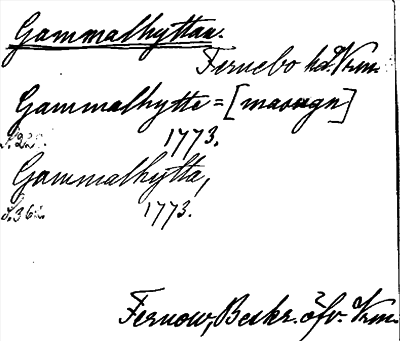 Gammalhyttan.
Fernebo hd. Vrm.
Gammalhytte = [masugn]
1773.
Gammalhytta,
1773.
Fernow, Beskr. öfv. Vrm.